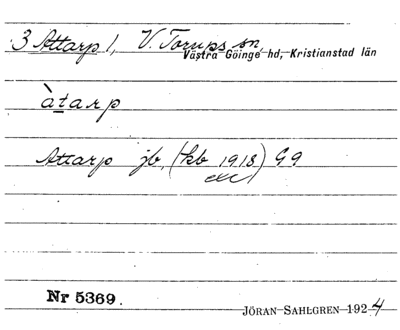 3 Attarp 1, V. Torups sn,
Västra Göinge hd, Kristianstad län
àtarp
Attarp jb, (kb 1918) G9
Nr 5369.
JÖRAN SAHLGREN 1924